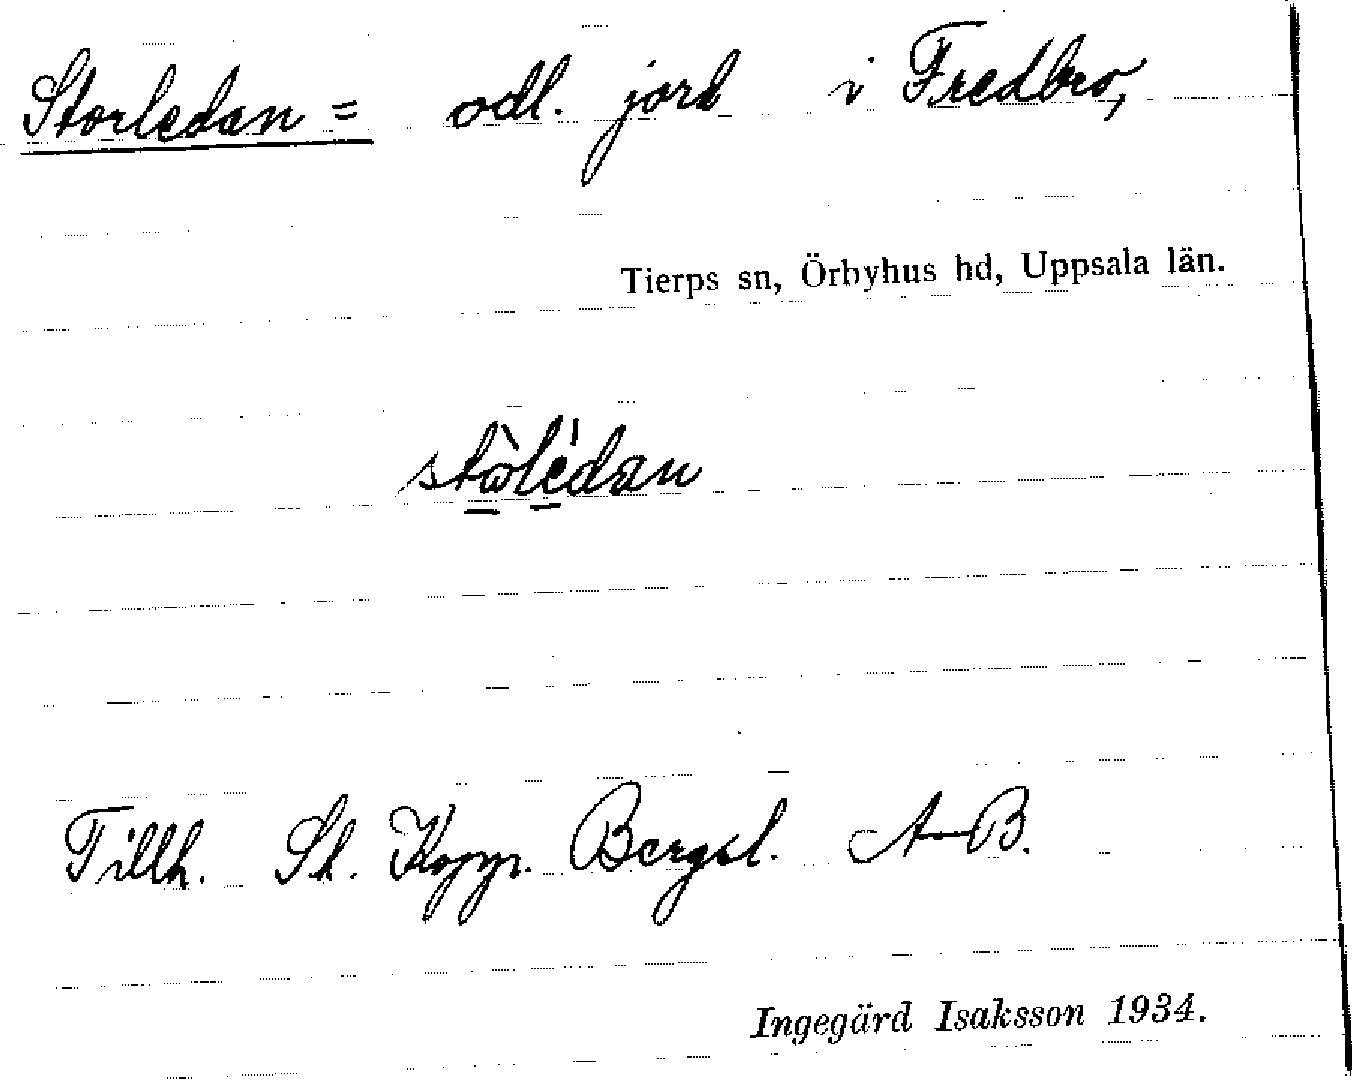 Storledan = odl. jord i Fredbro,
Tierps sn, Örbyhus hd, Uppsala län.
stò̱lé̱dan
Tillh. St. Kopp. Bergsl. A-B.
Ingegärd Isaksson 1934.